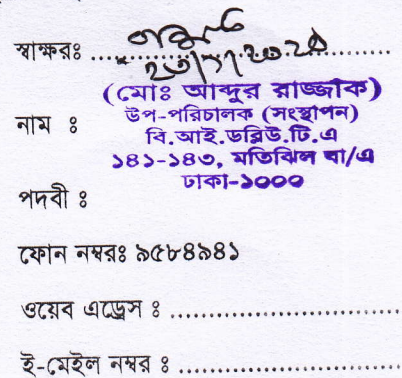 স্বাক্ষরঃ
(মোঃ আব্দুর রাজ্জাক)
নাম ঃ উপ-পরিচালক (সংস্থাপন)
বি.আই.ডব্লিউ.টি.এ
১৪১-১৪৩, মতিঝিল বা/এ
ঢাকা-১০০০
পদবী ঃ
ফোন নম্বরঃ ৯৫৮৪৯৪১
ওয়েব এড্রেস ঃ ....................................
ই-মেইল নম্বর ঃ ....................................